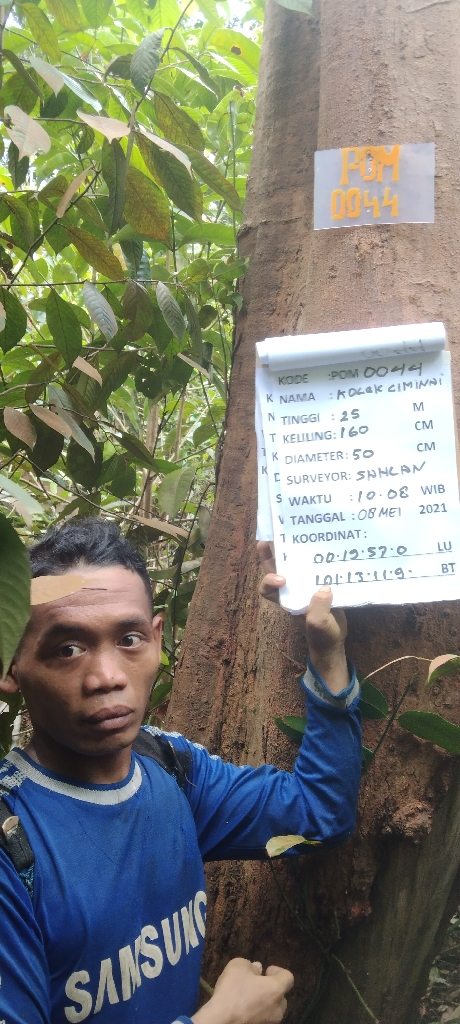 POM
0044
KODE :POM 0044
NAMA : KOLEK CIMINNI
TINGGI : 25 M
KELILING: 160 CM
DIAMETER: 50 CM
SURVEYOR: SAHLAN
WAKTU : 10.08 WIB
TANGGAL : 08 MEI 2021
KOORDINAT:
00.19.57.0 LU
101.13.11.9. BT
SAMSUNG